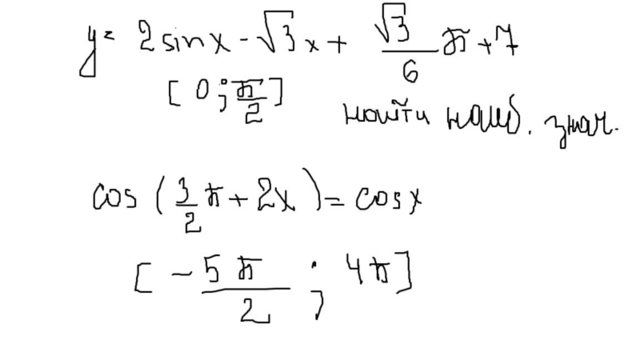 y = 2 sin x - √3 x + √3/6 π + 7
[ 0 ; π/2 ]
найти наиб. знач.
cos ( 3/2 π + 2x ) = cos x
[ - 5π/2 ; 4π ]